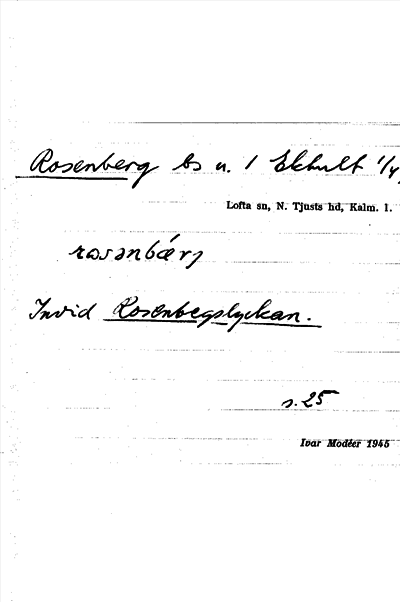 Rosenberg bs u. 1 Ekhult 1/4
Lofta sn, N. Tjusts hd, Kalm. l.
rosənbærj
Invid Rosenbegslyckan.
s. 25
Ivar Modéer 1945